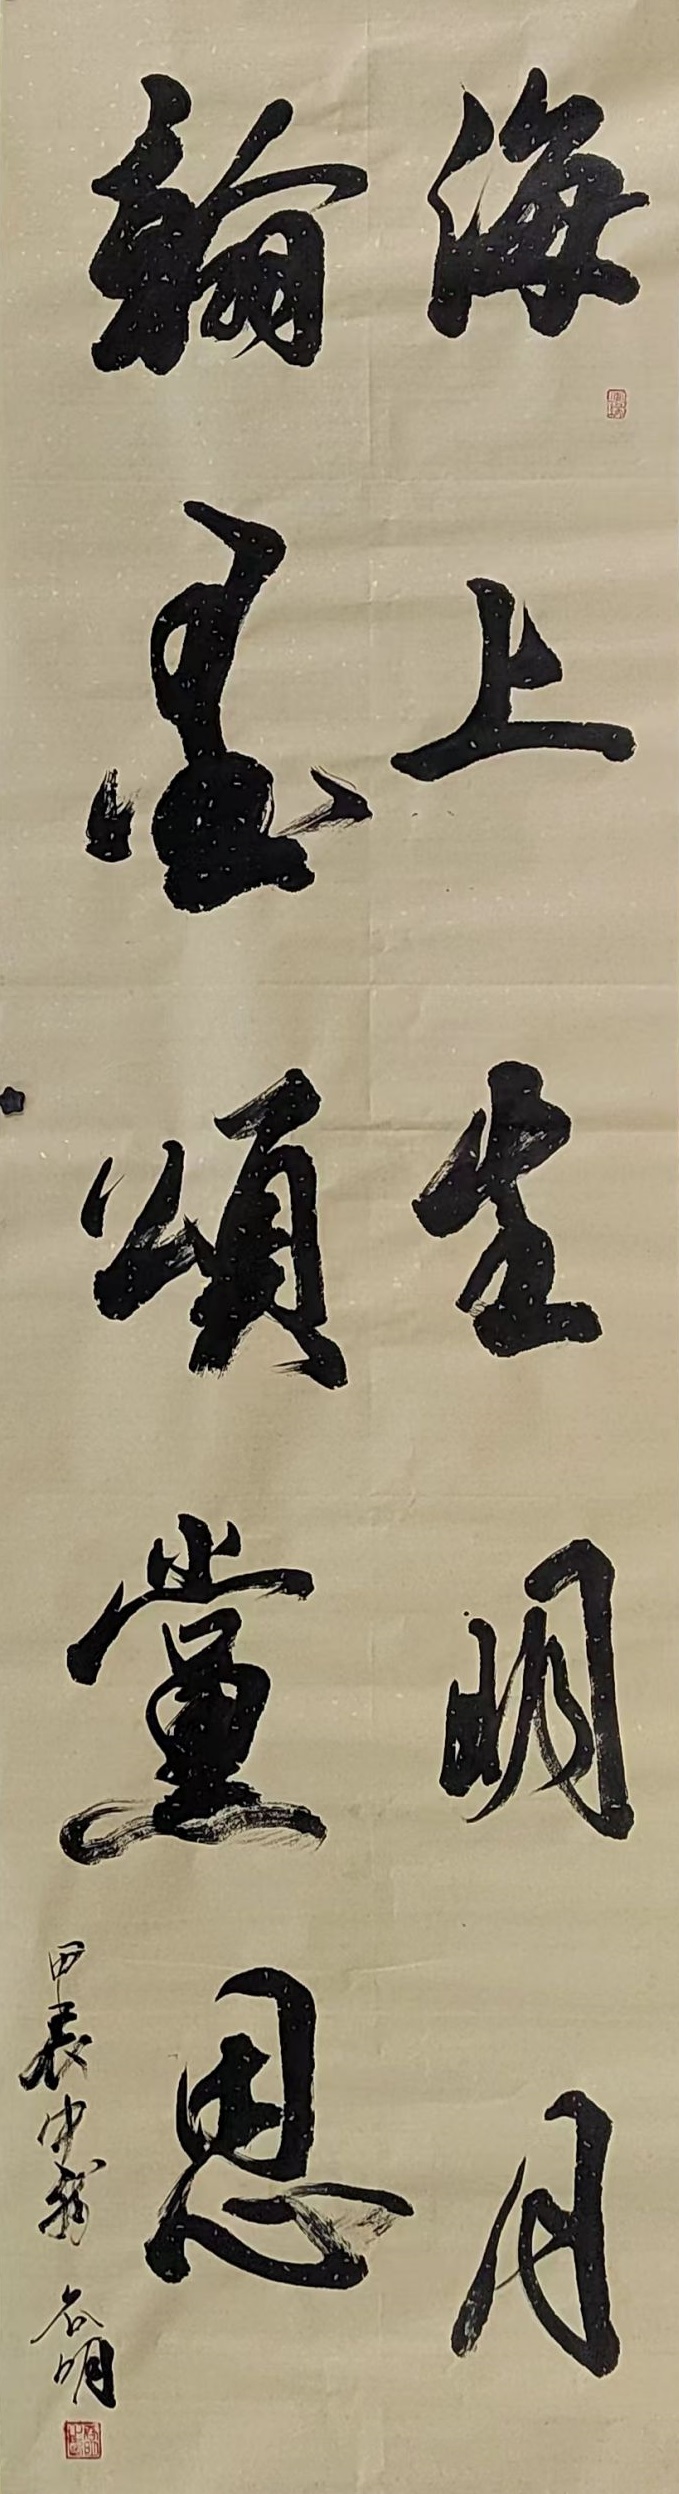 海上生明月
翰墨頌黨恩
甲辰中秋 石明